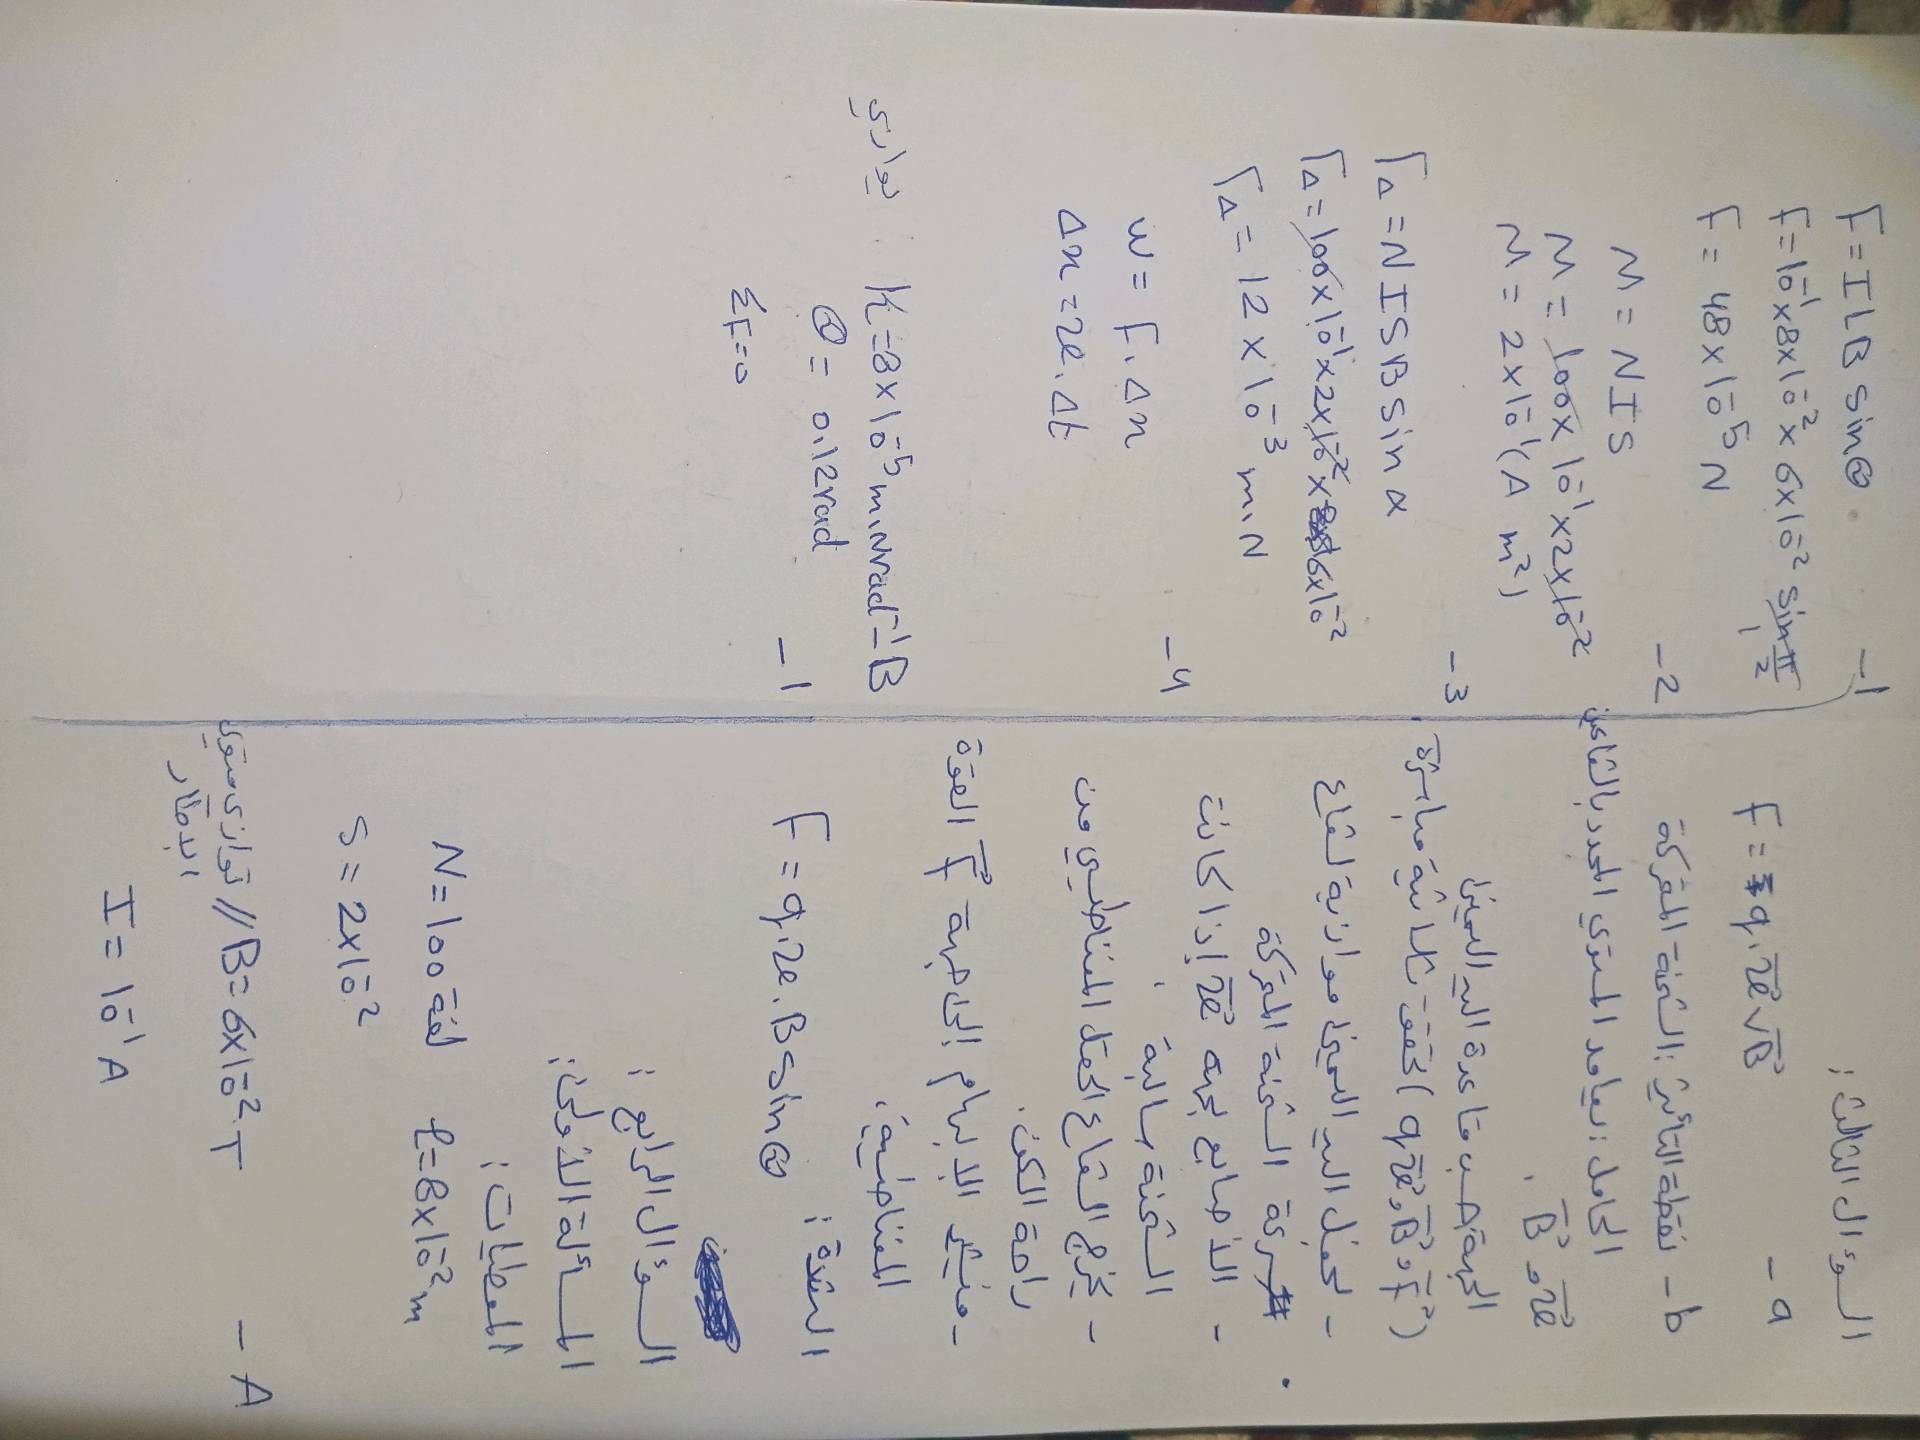 السؤال الثالث :
a - F = q.v̄ʌB̄
b - نقطة التأثير : الشحنة المتحركة
الحامل : يعامد المستوي المحدد بالشعاعين
v̄ و B̄ .
الجهة : حسب قاعدة اليد اليمنى
(تحقق ثلاثية مباشرة q v̄ و B̄ و F̄)
- نجعل اليد اليمنى موازية لشعاع
سرعة الشحنة المتحركة
- الأصابع بجهة v̄ إذا كانت
الشحنة سالبة .
- يخرج شعاع الحقل المغناطيسي من
راحة الكف .
- فيشير الإبهام إلى جهة F̄ القوة
المغناطيسية .
الشدة :
F = q.v.B sin θ
السؤال الرابع :
المسألة الأولى :
المعطيات :
N = 100 لفة ℓ = 8×10⁻² m
S = 2×10⁻²
A - B = 6×10⁻² T // توازي مستوي
الإطار
I = 10⁻¹ A
1- F = I L B sin θ
F = 10⁻¹ × 8×10⁻² × 6×10⁻² sin π/2
1
F = 48×10⁻⁵ N
2- M = N I S
M = 100 × 10⁻¹ × 2×10⁻²
M = 2×10⁻¹ (A m²)
3- Γ∆ = N I S B sin α
Γ∆ = 100×10⁻¹×2×10⁻²×6×10⁻²
Γ∆ = 12 × 10⁻³ m.N
4- W = F . ∆x
∆x = v . ∆t
B - K = 8×10⁻⁵ m.N rad⁻¹
1- θ' = 0.12 rad
ΣF = 0